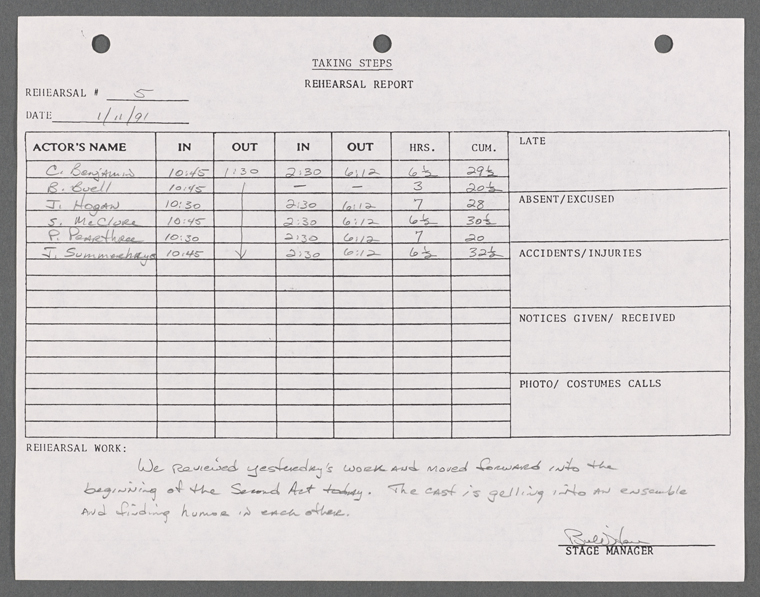 TAKING STEPS
REHEARSAL REPORT
REHEARSAL # 5
DATE 1/11/91
ACTOR'S NAME IN OUT IN OUT HRS. CUM.
C. Benjamin 10:45 1:30 2:30 6:12 6½ 29½
B. Buell 10:45 — — 3 20½
J. Hogan 10:30 2:30 6:12 7 28
S. McClure 10:45 2:30 6:12 6½ 30½
P. Pearthree 10:30 2:30 6:12 7 20
J. Summerhays 10:45 2:30 6:12 6½ 32½
LATE
ABSENT/EXCUSED
ACCIDENTS/INJURIES
NOTICES GIVEN/ RECEIVED
PHOTO/ COSTUMES CALLS
REHEARSAL WORK:
We reviewed yesterday's work and moved forward into the
beginning of the Second Act today. The cast is gelling into an ensemble
and finding humor in each other.
STAGE MANAGER